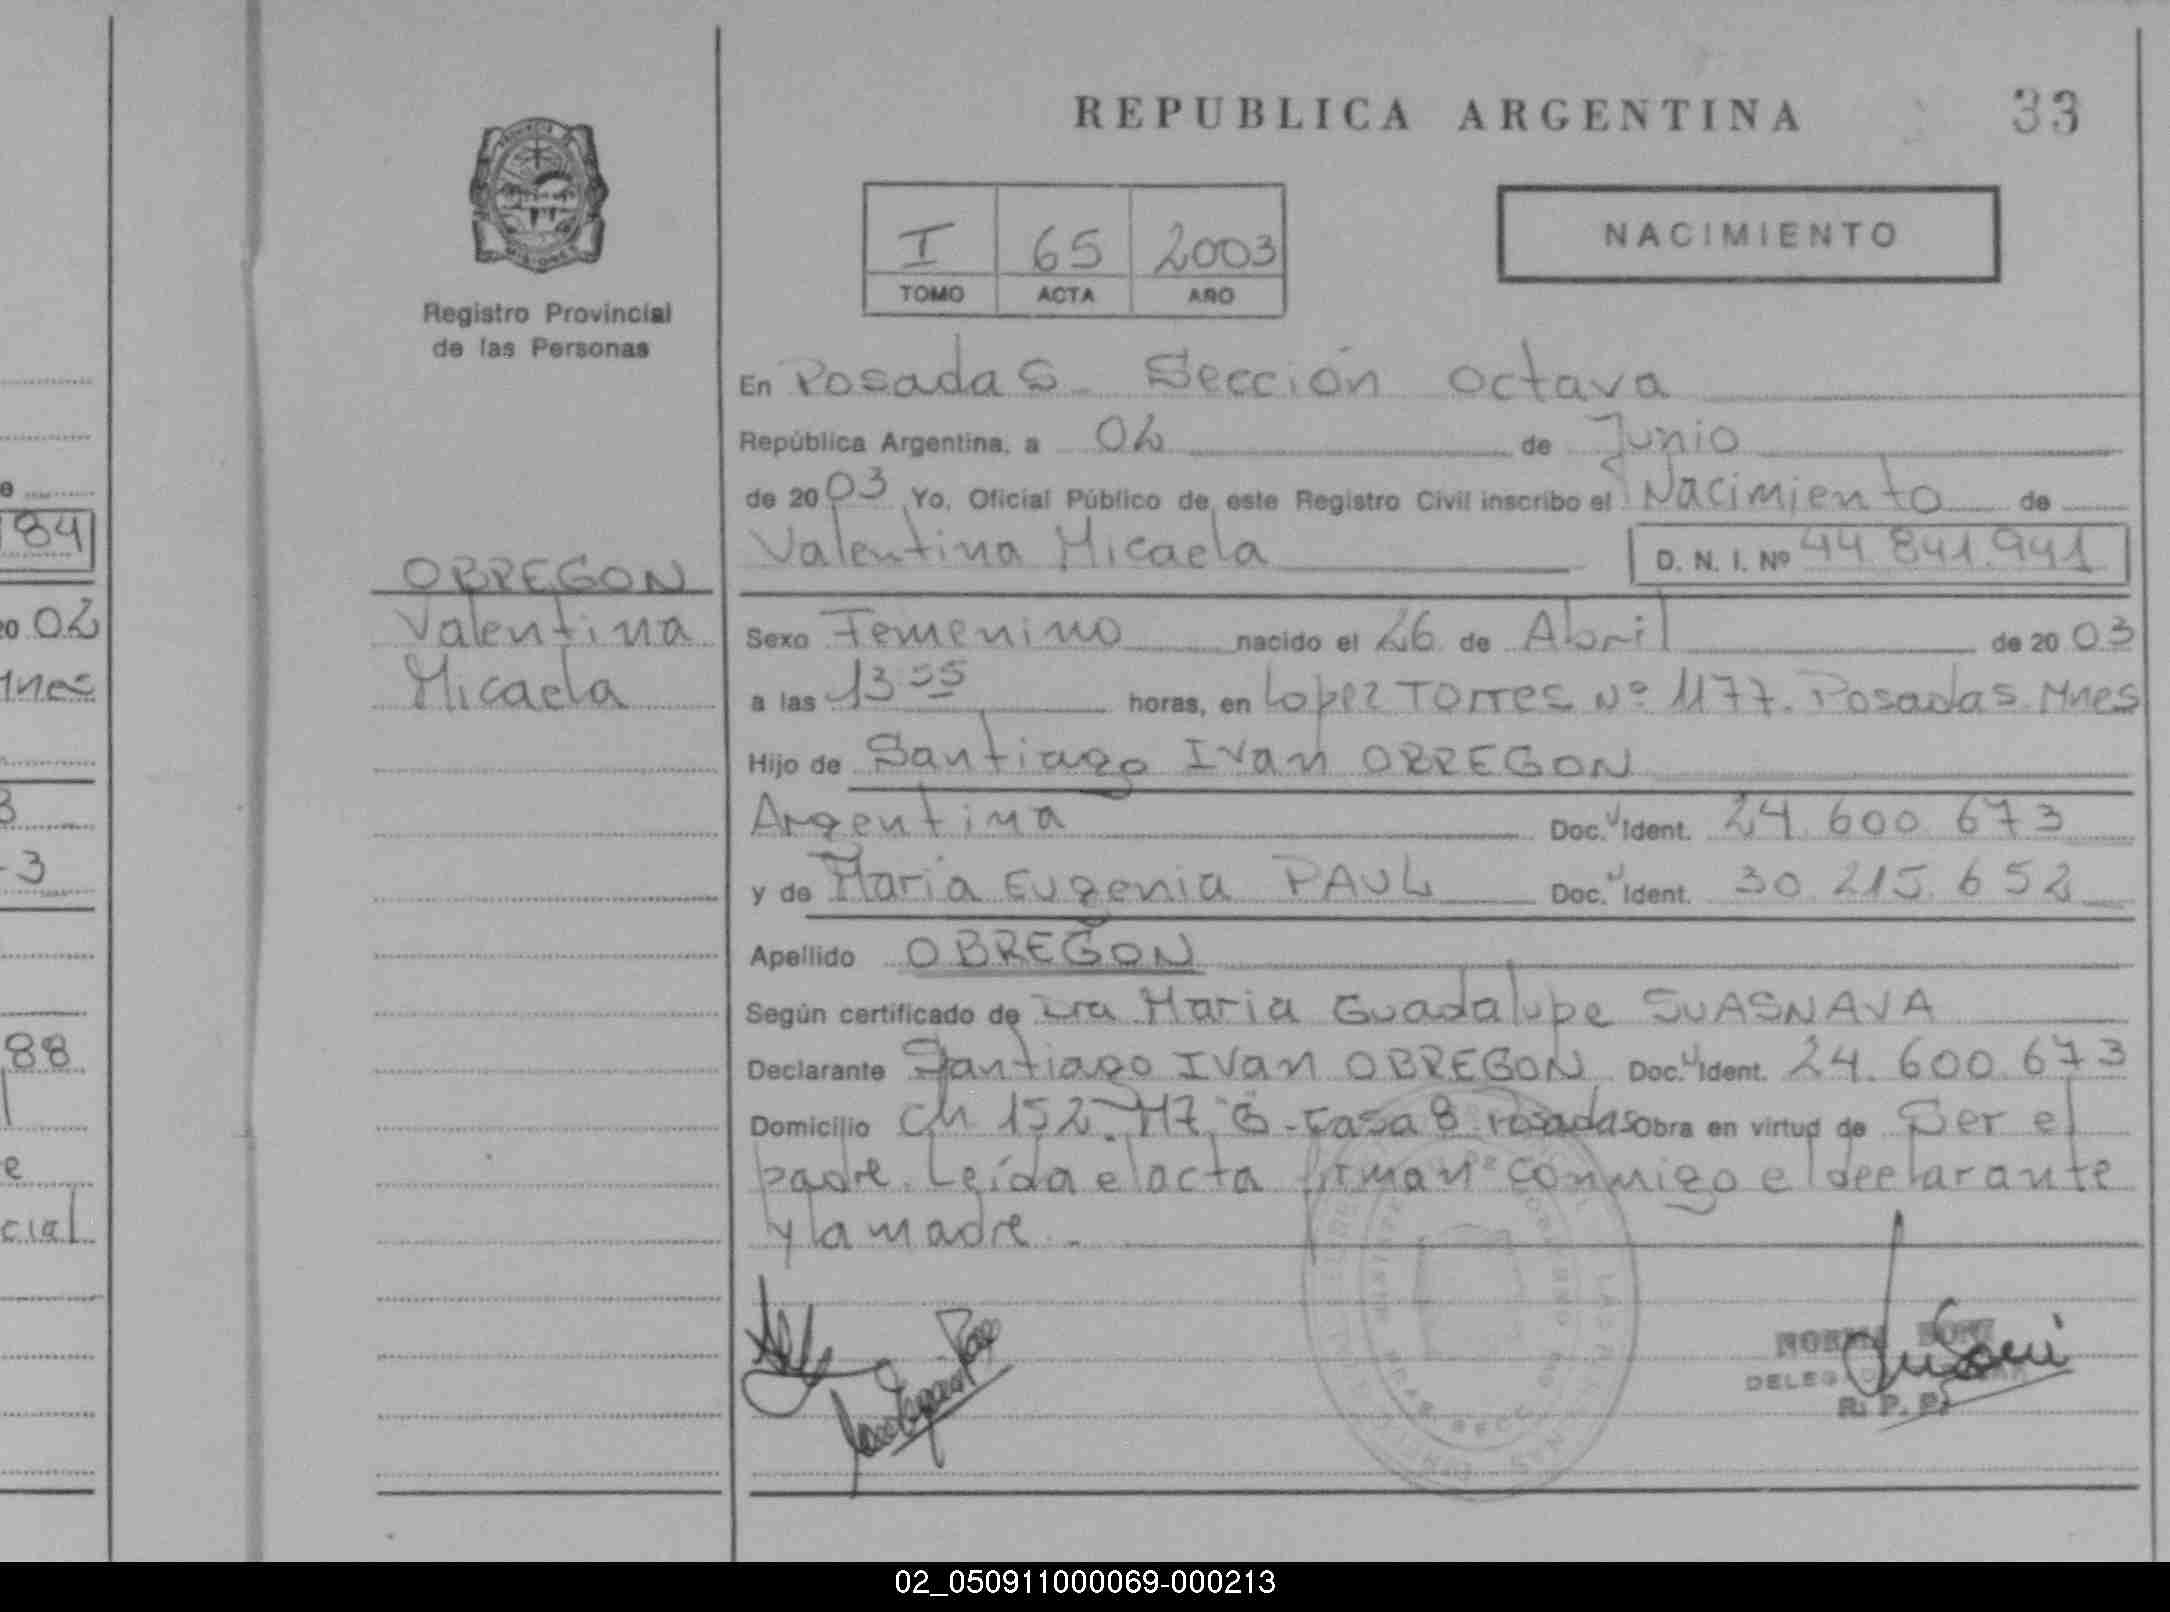 REPUBLICA ARGENTINA
33
PROVINCIA
MISIONES
Registro Provincial
de las Personas
I 65 2003
TOMO ACTA AÑO
NACIMIENTO
En Posadas - Sección Octava
República Argentina, a 02 de Junio
de 2003 Yo, Oficial Público de este Registro Civil inscribo el Nacimiento de
Valentina Micaela D. N. I. Nº 44 841.941
OBREGON
Valentina
Micaela
Sexo Femenino nacido el 26 de Abril de 2003
a las 13 55 horas, en Lopez Torres Nº 1177. Posadas Mnes
Hijo de Santiago Ivan OBREGON
Argentina Doc. Ident. 24.600.673
y de Maria Eugenia PAUL Doc. Ident. 30.215.652
Apellido OBREGON
Según certificado de Dra Maria Guadalupe SUASNAVA
Declarante Santiago Ivan OBREGON Doc. Ident. 24.600.673
Domicilio Ch 152. Casa 8 Posadas Obra en virtud de Ser el
padre. Leída el acta firman conmigo el declarante
y la madre.-
NORMA
DELEG
R. P. P.
84
20 02
Mnes
3
-3
88
e
cial
02_050911000069-000213